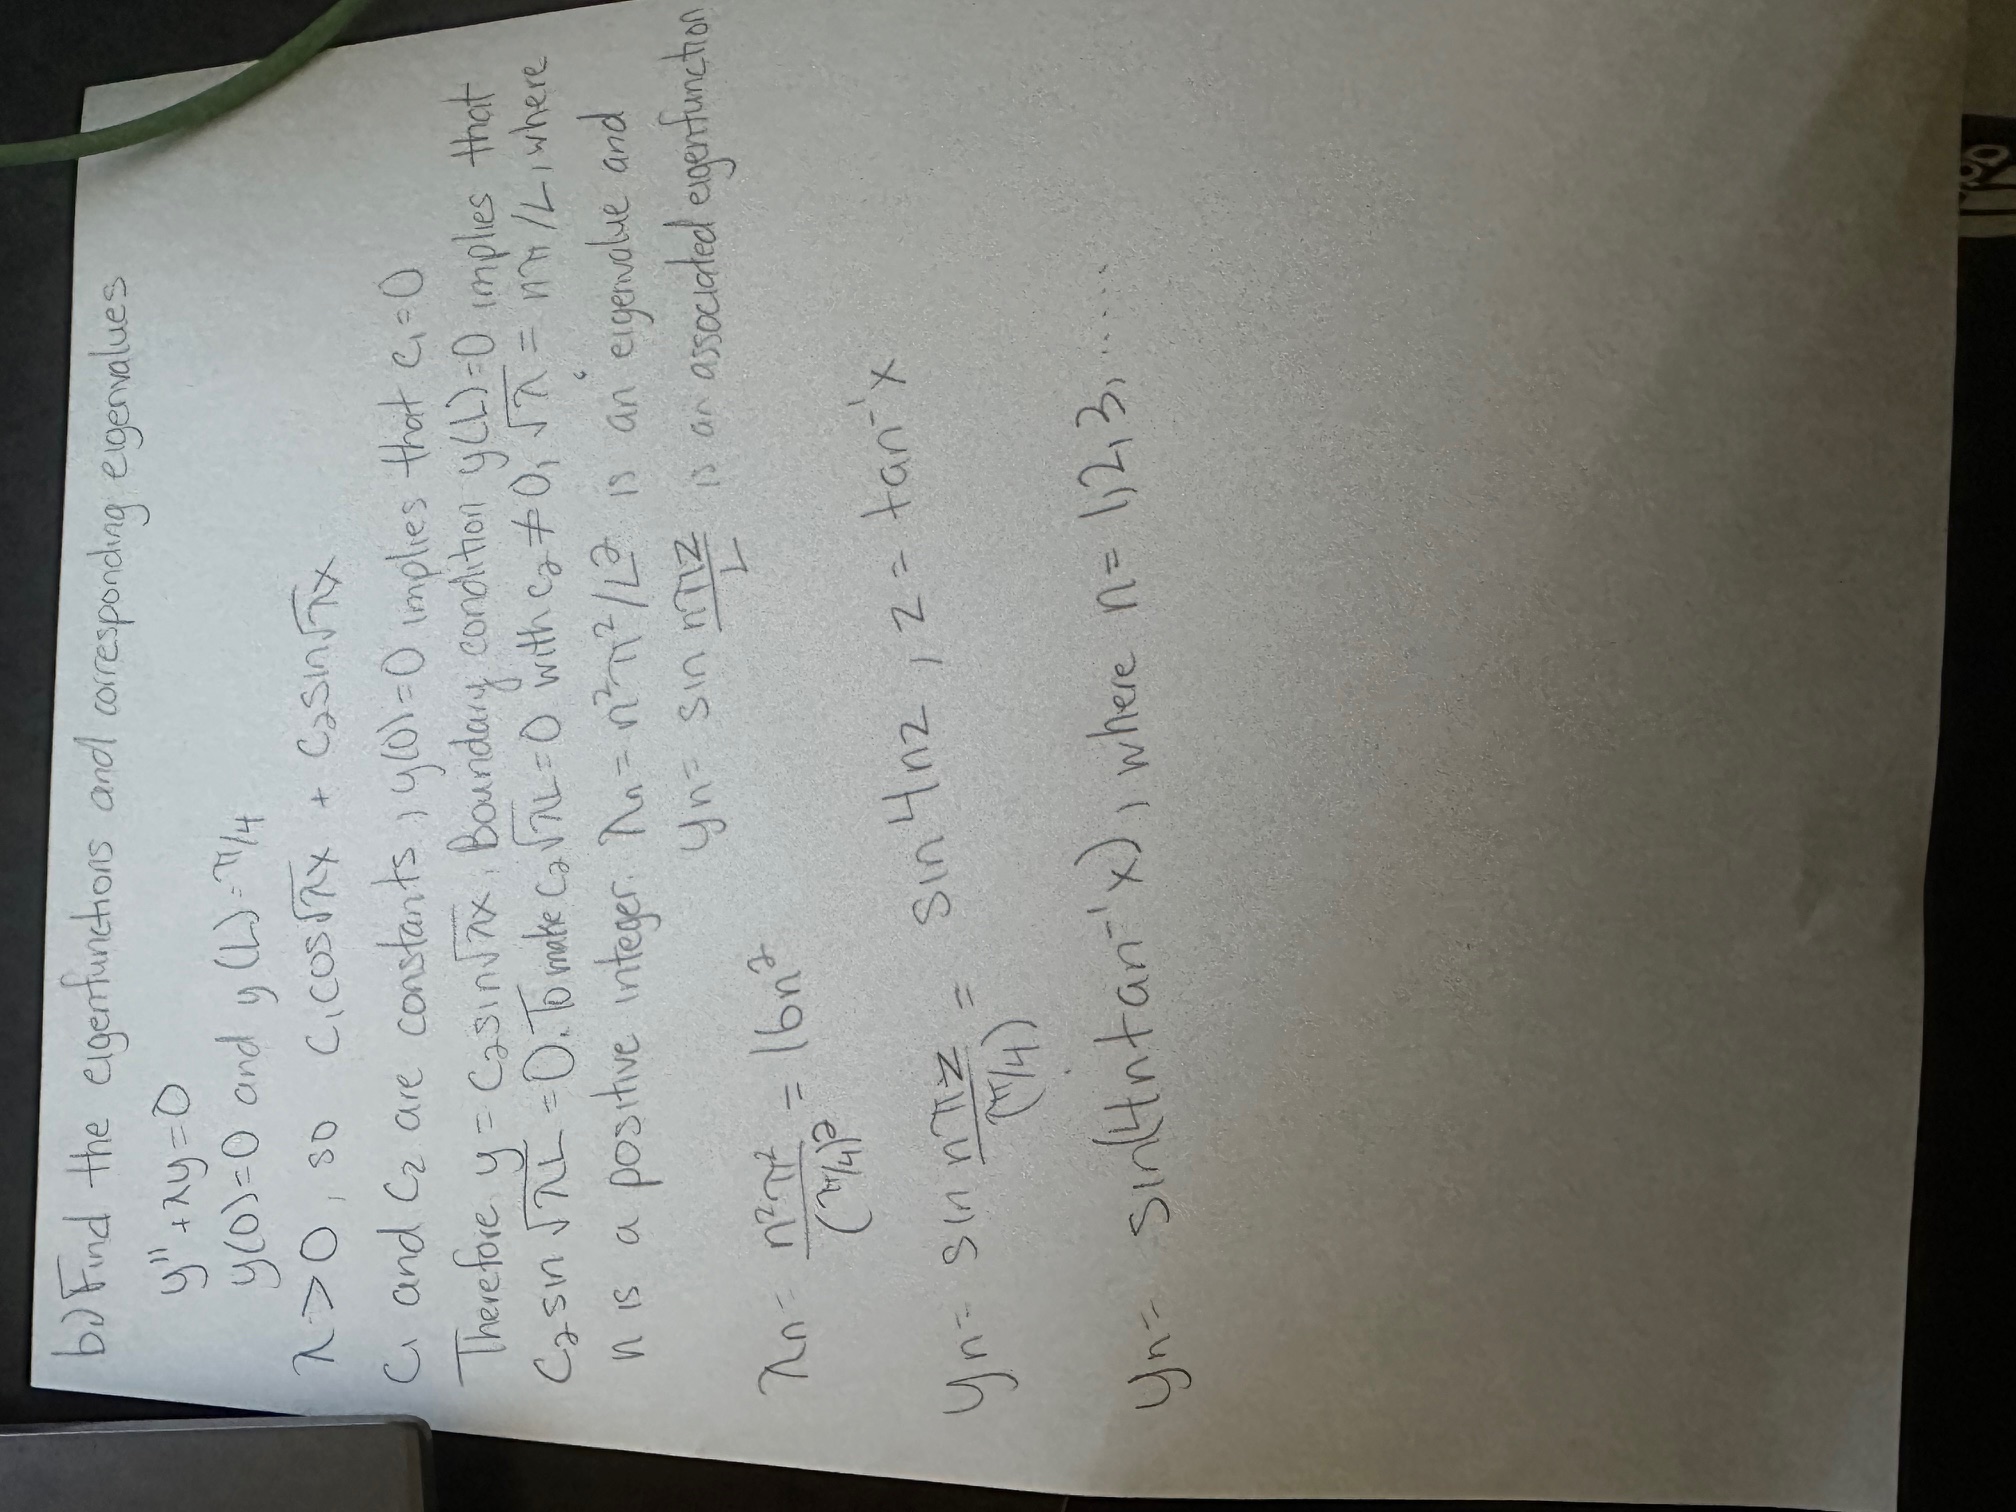 b.) Find the eigenfunctions and corresponding eigenvalues
y'' + λy = 0
y(0) = 0 and y(L) = π/4
λ > 0, so c₁cos√λx + c₂sin√λx
c₁ and c₂ are constants, y(0) = 0 implies that c₁ = 0
Therefore y = c₂sin√λx. Boundary condition y(L) = 0 implies that
c₂sin√λL = 0. To make c₂√λL = 0 with c₂ ≠ 0, √λ = nπ/L, where
n is a positive integer. λn = n²π²/L² is an eigenvalue and
yn = sin nπz/L is an associated eigenfunction
λn = n²π²/(π/4)² = 16n²
yn = sin nπz/(π/4) = sin4nz, z = tan⁻¹x
yn = sin(4ntan⁻¹x), where n = 1,2,3,......